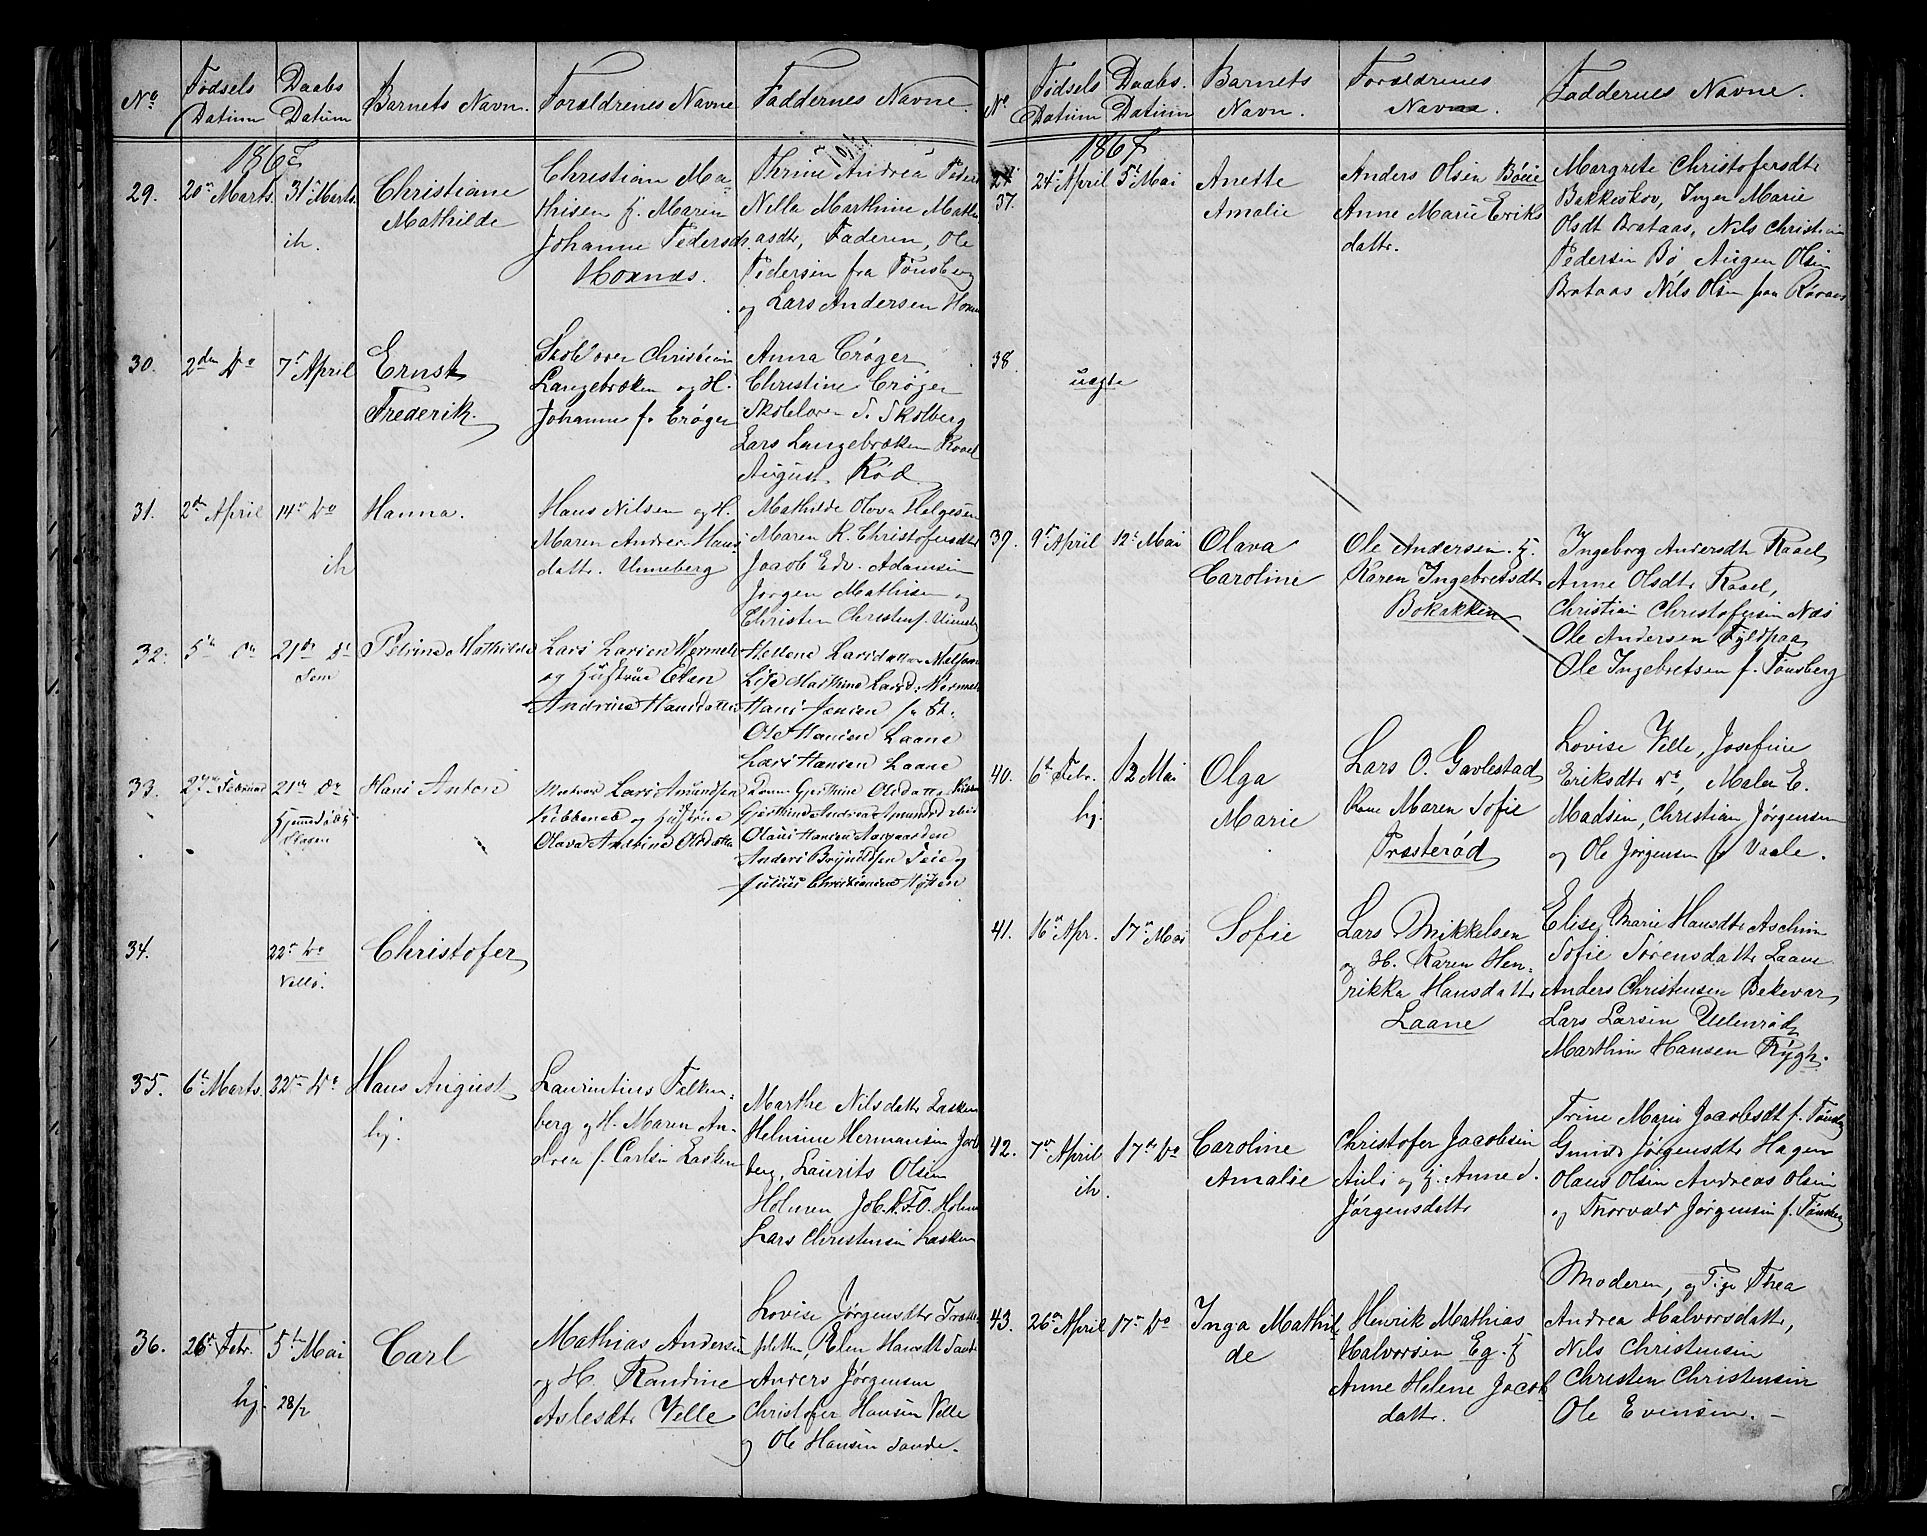 No Fødsels Datum Daabs Datum Barnets Navn. Forældrenes Navne Faddernes Navne
1867
29. 20de Marts. 31te Marts. Christiane Christian Ma-
ih. Mathilde thisen & Maren
Johanne Pedersd.
Moxnæs.
Thrine Andrea Peders
Nilla Marthine Mathi
asdtr, Faderen, Ole
Pedersen fra Tønsberg
og Lars Andersen
30. 2den Do 7de April Ernst
Frederik.
Christian
Langebrækken og H.
Johanne f. Crøger
Anna Crøger
Christine Crøger
Skolelærer S. Skolberg
Lars Langebrækken Raael
August Rød
31. 2den April 14de Do Hanna.
ih
Hans Nilsen og H.
Maren Andrea Hans
datter. Unneberg
Mathilde Olava Helgesen
Maren K. Christofersdtr
Jacob Edv. Adamsen
Jørgen Mathisen og
Christen Christens.
32. 5te 21de Petrine Mathilde
Sem
Lars Larsen
og Hustrue Elen
Andrine Hansdatter
Hellene Larsdatter
Lise Marthine Larsd.
Hans Jensen
Ole Hansen Laane
Lars Hansen Laane
33. 27de Februar 21de Hans Anton
Hjemmedøbt
Lars Amundsen
og Hustrue
Olava Andrine Olsdatter
Gjerthine Olsdatter
Andrea Amundsd.
Olaus Hansen Aagaarden
Anders Brynildsen Teie og
Julius Christiansen
34. 22de Do Christofer
Vellø.
35. 6te Marts. 22de Do Hans August
hj.
Laurentius Falken-
berg og H. Maren An-
drea f. Carlsen Lasken
Marthe Nilsdatter Lasken
Helmine Hermansen
berg, Laurits Olsen
Holmen Jobs. Holmen
Lars Christensen Lasken
36. 26de Febr. 5te Mai Carl
hj. 28/2
Mathias Andersen
og H. Randine
Aslesdtr Velle
Lovise Jørgensdtr Træde
pletten, Elen Hansdt Sande
Anders Jørgensen
Christofer Hansen Velle
og Ole Hansen Sande.
No Fødsels Datum Daabs. Datum Barnets Navn. Forældrenes Navne Faddernes Navne.
1867
37. 24de April 5te Mai Anette
Amalie
Anders Olsen Bøeie
Anne Marie Eriks
datter.
Margrete Christofersdtr
Bakkeskov, Inger Marie
Olsdt Brataas, Nils Christian
Pedersen Bø Augen Olsen
Brataas Nils Olsen paa Røraas
38.
uægte
39. 9de April 12te Mai Olava
Caroline
Ole Andersen &
Karen Ingebretsdtr
Bokakken
Ingeborg Andersdt Raael,
Anne Olsdtr Raael,
Christian Christofersen Næs
Ole Andersen Fyldpaa
Ole Ingebretsen f. Tønsberg
40. 6te Febr. 12 Mai Olga
hj. Marie
Lars O. Gavlestad
Kone Maren Sofie
Træsterød
Lovise Velle, Josefine
Eriksdtr Do, Malen E.
Madsen, Christian Jørgensen
og Ole Jørgensen p Vaale.
41. 16de Apr. 17de Mai Sofie
Lars Mikkelsen
og H. Karen Hen-
rikka Hansdatter
Laane
Elise Marie Hansdtr Aschim
Sofie Sørensdatter Laane
Anders Christensen Bekevar
Lars Larsen Ullenrød
Marthin Hansen Rygh.
42. 7de April 17de Do Caroline
ih. Amalie
Christofer Jacobsen
Auli og H. Anne J.
Jørgensdatter
Trine Marie Jacobsdt f. Tønsberg
Gunild Jørgensdtr Hagen
Olaus Olsen Andreas Olsen
og Thorvald Jørgensen f. Tønsberg
43. 26de April 17de Do Inga Mathil
de
Henrik Mathias
Halvorsen Eg. &
Anne Helene Jacob
datter.
Moderen, og Pige Thea
Andrea Halvorsdatter,
Nils Christensen
Christen Christensen
Ole Evensen. -